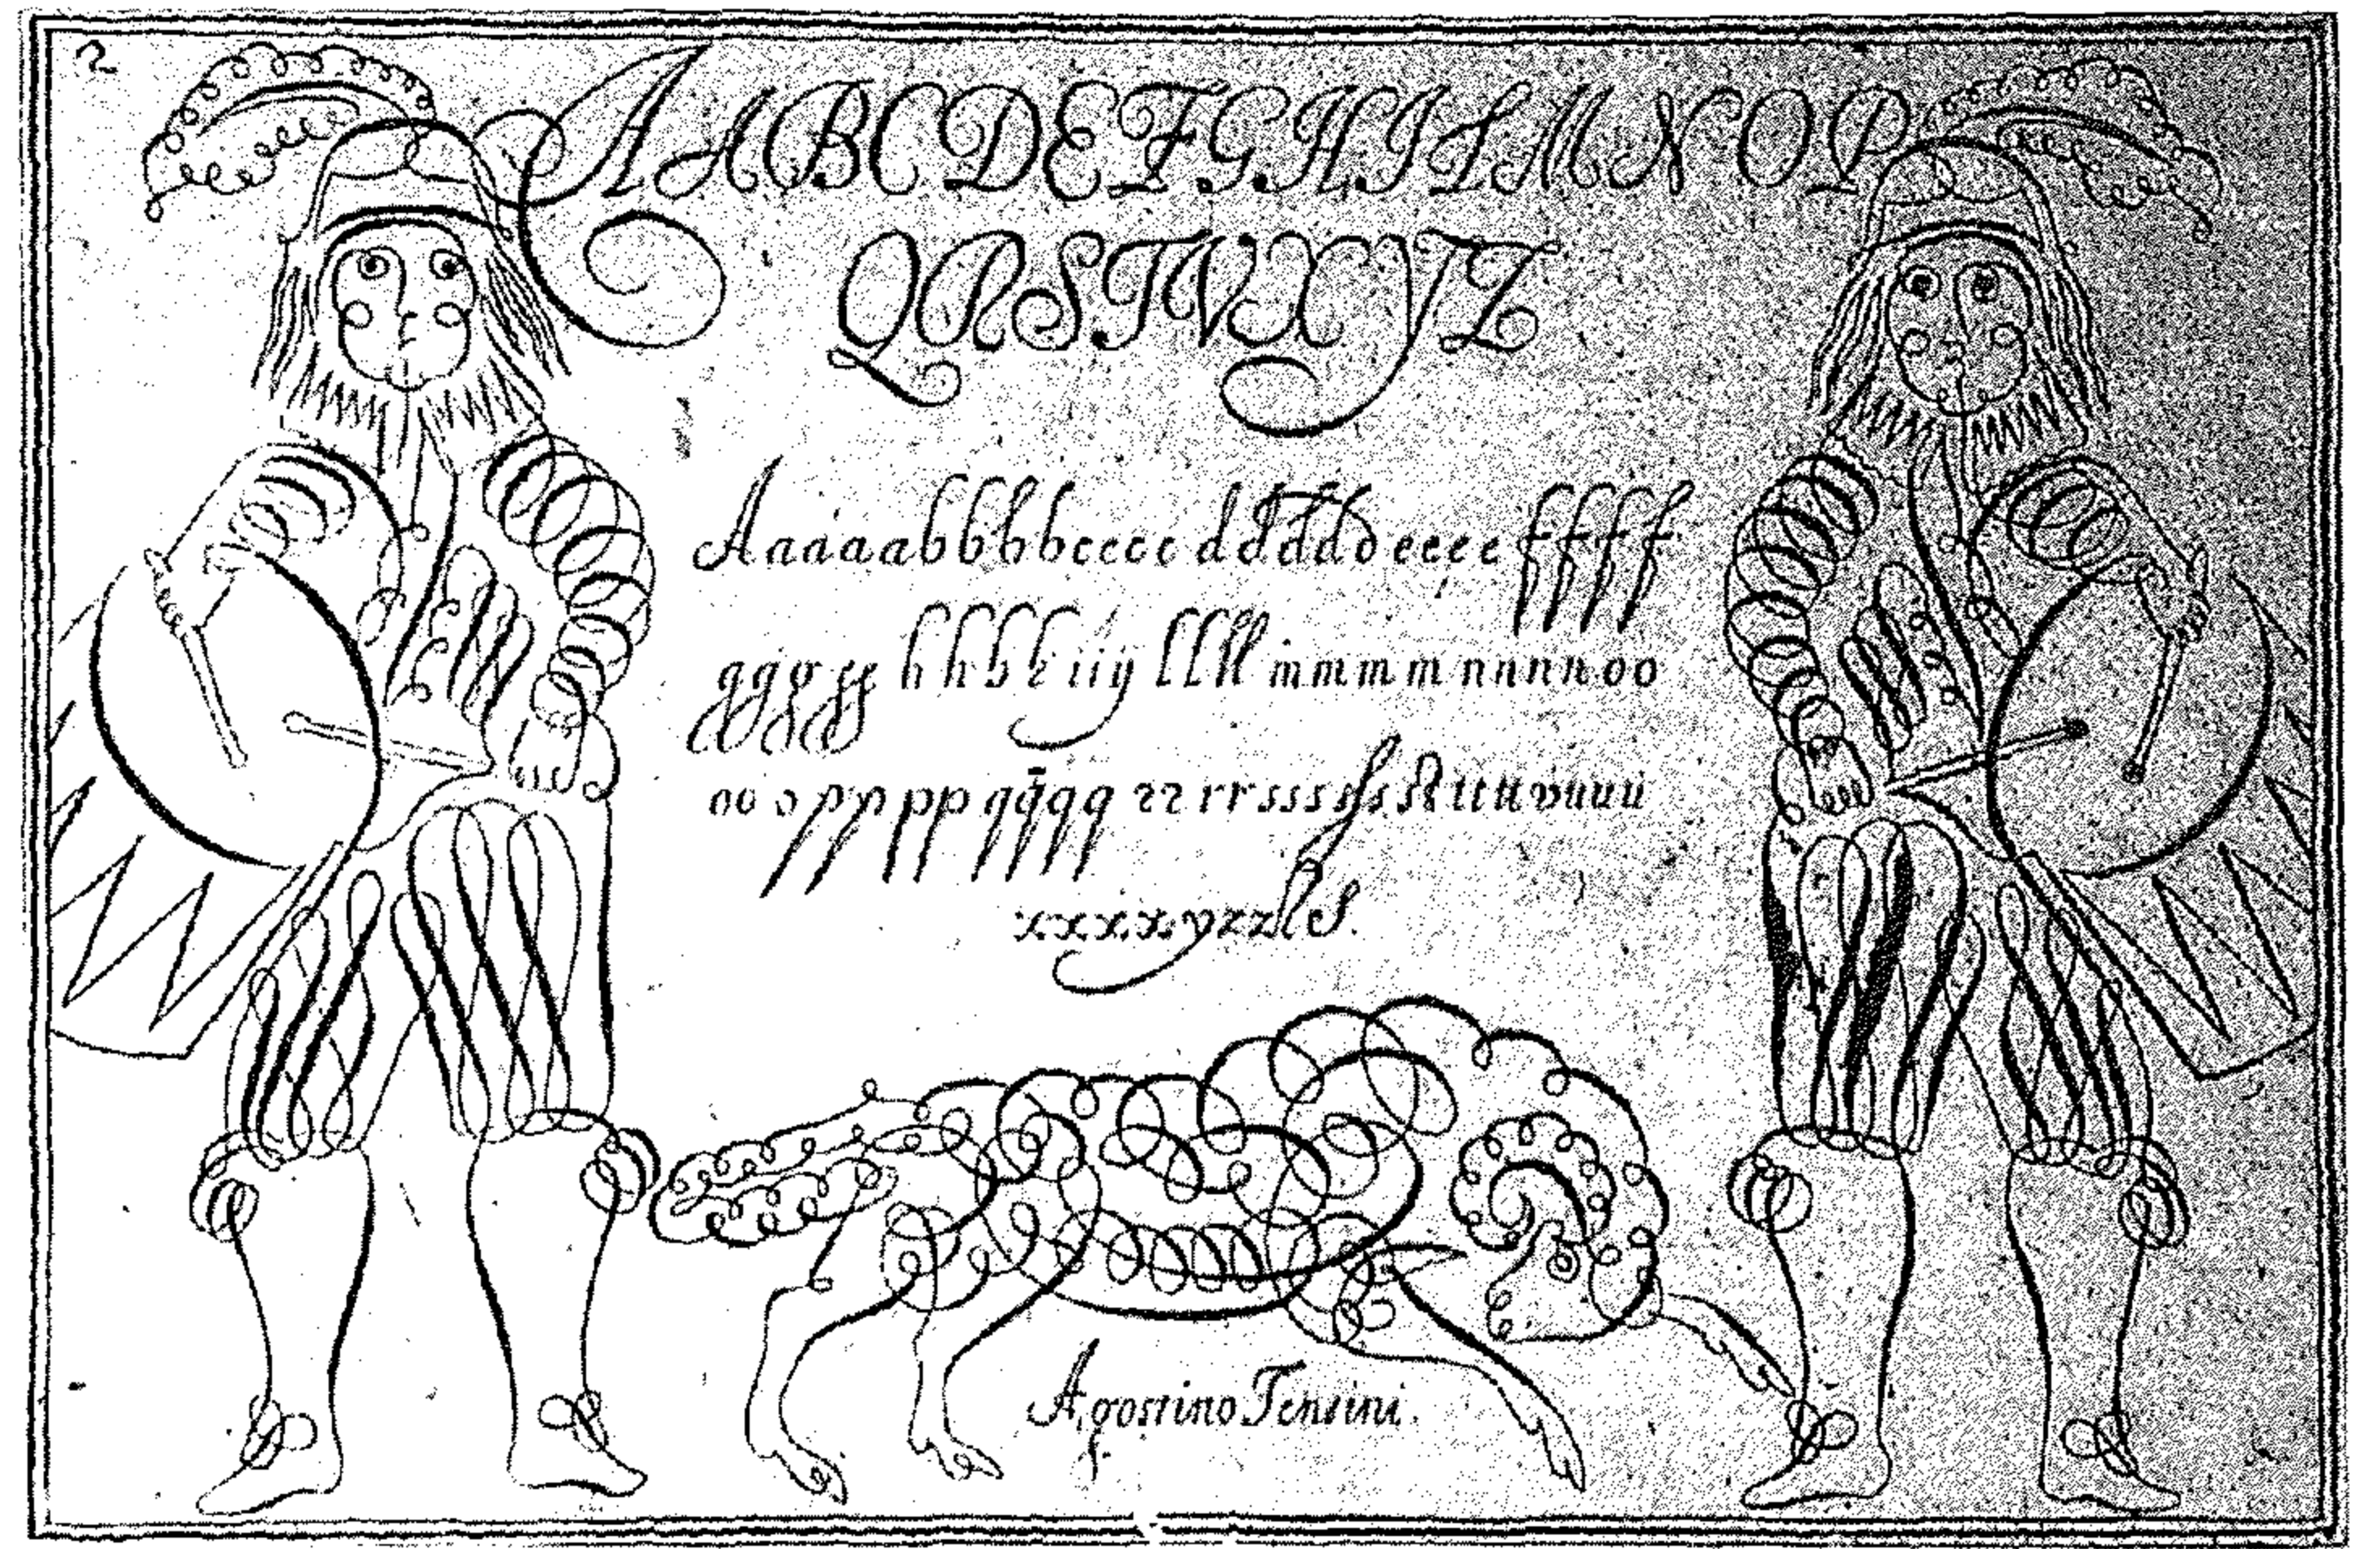 2
AABCDEFGHILMNOP
QRSTVXYZ
Aaaaabbbbcccc dddddeeee ffff
gggg hhhh iijy llll mmmmnnnnoo
ooo pppp qqqq rrrr ssss tttt vuuu
xxxxyzz
Agostino Tensini
f.